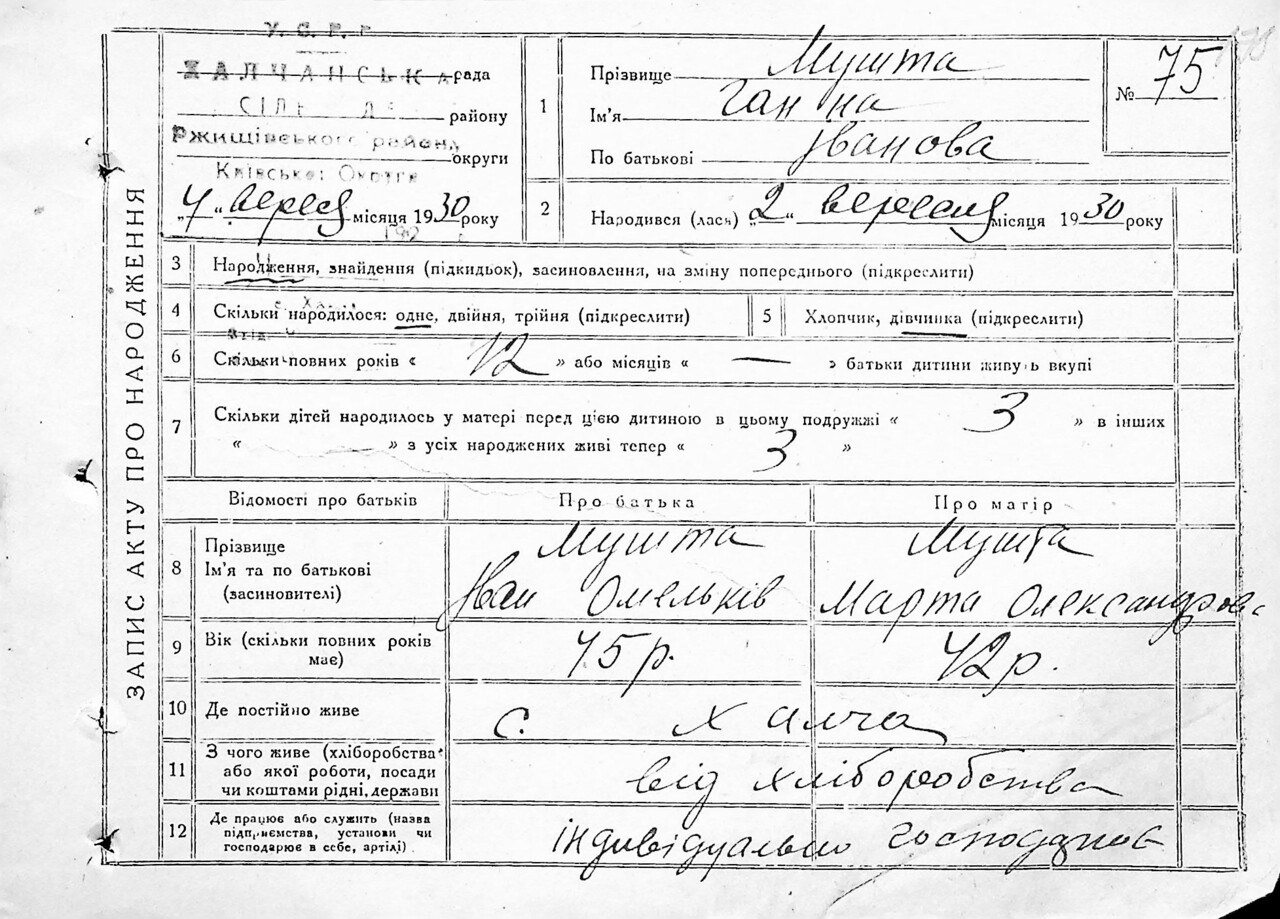 У. С. Р. Р
ХАЛЧАНСЬКА рада
СІЛЬ району
Ржищівського району
округи
Київської Округи
„4„ вересня місяця 1930 року
1
Прізвище Мушта
Ім'я Ганна
По батькові Іванова
№ 75
2
Народився (лась) „2„ вересня місяця 1930 року
ЗАПИС АКТУ ПРО НАРОДЖЕННЯ
3 Народження, знайдення (підкидьок), засиновлення, на зміну попереднього (підкреслити)
4 Скільки народилося: одне, двійня, трійня (підкреслити)
5 Хлопчик, дівчинка (підкреслити)
6 Скільки повних років « 12 » або місяців « — » батьки дитини живуть вкупі
7 Скільки дітей народилось у матері перед цією дитиною в цьому подружжі « 3 » в інших
« — » з усіх народжених живі тепер « 3 »
Відомості про батьків Про батька Про матір
8 Прізвище Мушта Мушта
Ім'я та по батькові Іван Омельків Марта Олександрова
(засиновителі)
9 Вік (скільки повних років 45 р. 42 р.
має)
10 Де постійно живе с. Халча
11 З чого живе (хліборобства
або якої роботи, посади від хліборобства
чи коштами рідні, держави
12 Де працює або служить (назва
підприємства, установи чи індивідуально
господарює в себе, артілі)